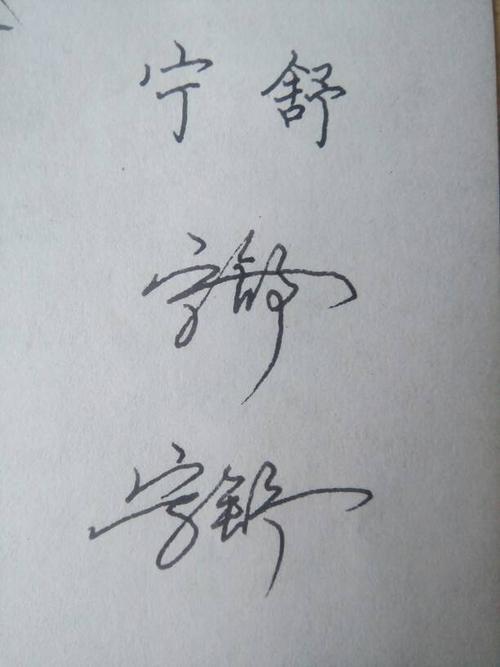 宁舒
宁舒
宁舒